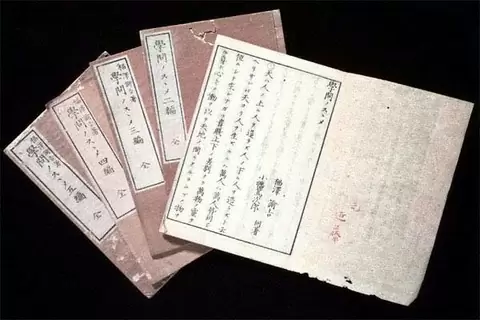 學問ノスヽメ
福澤諭吉
小幡篤次郎 同著
天ハ人ノ上ニ人ヲ造ラズ人ノ下ニ人ヲ造ラズト云
ヘリサレバ天ヨリ人ヲ生ズルニハ萬人ハ萬人皆同ジ
位ニシテ生レナガラ貴賤上下ノ差別ナク萬物ノ靈
タル身ト心トノ働ヲ以テ天地ノ間ニアルヨロヅノ物ヲ
學問ノスヽメ 二編 全
學問ノスヽメ 三編 全
學問ノスヽメ 四編 全
學問ノスヽメ 五編 全